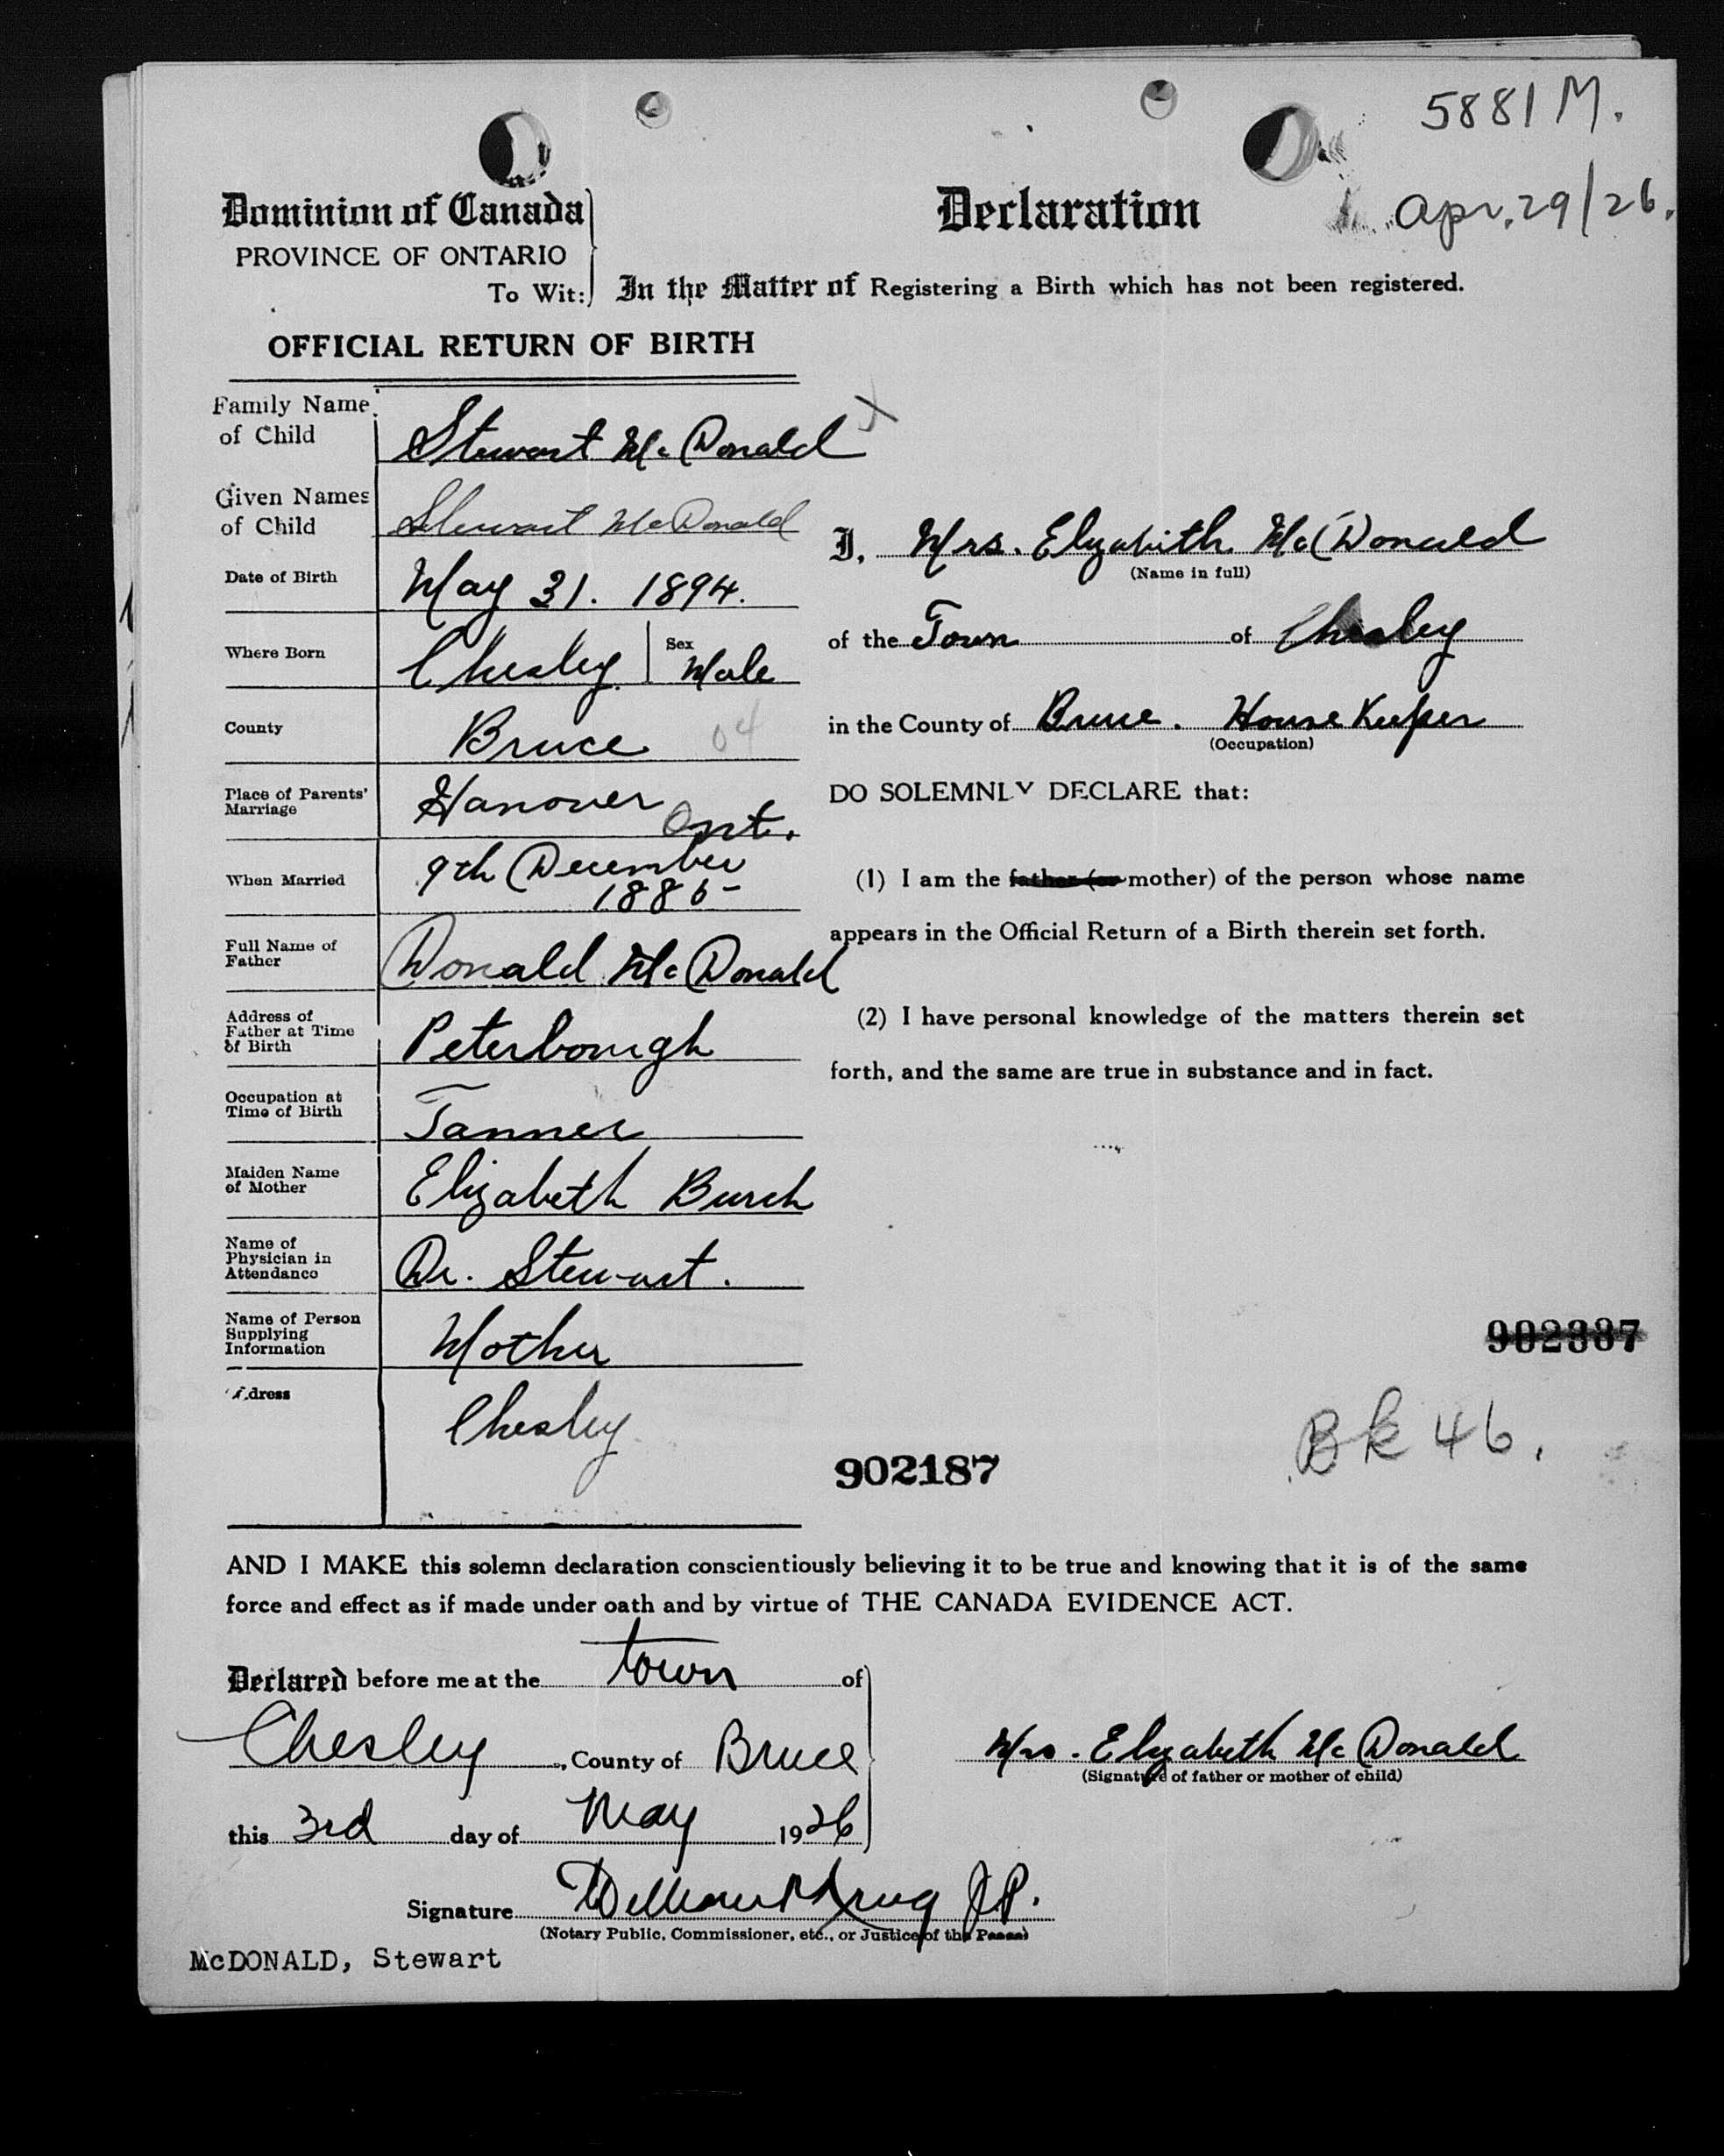 5881 M.
Apr. 29/26.
Dominion of Canada
PROVINCE OF ONTARIO
To Wit:
Declaration
In the Matter of Registering a Birth which has not been registered.
OFFICIAL RETURN OF BIRTH
Family Name of Child Stewart McDonald X
Given Names of Child Stewart McDonald
Date of Birth May 31. 1894.
Where Born Chesley Sex Male
County Bruce 04
Place of Parents' Marriage Hanover Ont.
When Married 9th December 1886
Full Name of Father Donald McDonald
Address of Father at Time of Birth Peterborough
Occupation at Time of Birth Tanner
Maiden Name of Mother Elizabeth Burch
Name of Physician in Attendance Dr. Stewart.
Name of Person Supplying Information Mother
Address Chesley
I, Mrs. Elizabeth McDonald
(Name in full)
of the Town of Chesley
in the County of Bruce. House Keeper
(Occupation)
DO SOLEMNLY DECLARE that:
(1) I am the father (or mother) of the person whose name
appears in the Official Return of a Birth therein set forth.
(2) I have personal knowledge of the matters therein set
forth, and the same are true in substance and in fact.
Bk 46.
902187
AND I MAKE this solemn declaration conscientiously believing it to be true and knowing that it is of the same
force and effect as if made under oath and by virtue of THE CANADA EVIDENCE ACT.
Declared before me at the town of
Chesley, County of Bruce
this 3rd day of May 1926
Mrs. Elizabeth McDonald
(Signature of father or mother of child)
Signature Krug J.P.
(Notary Public, Commissioner, etc., or Justice of the Peace)
McDONALD, Stewart